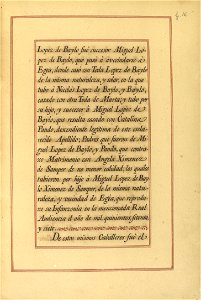 Lopez de Bayle fué sucesor Miguel Lo-
pez de Bayle, que pasó á avecindarse á
Egea, donde casó con Teda Lopez de Bayle
de la misma naturaleza, y solar, en la que
tubo á Nicolás Lopez de Bayle, y Bayle,
casado con otra Teda de Marta; y tubo por
su hijo, y sucesor á Miguel Lopez de
Bayle, que resulta casado con Catalina
Pando, descendiente legitima de este ante-
Apellido; Padres que fueron de Mi-
guel Lopez de Bayle, y Pando, que contra-
xo Matrimonio con Angela Ximenez
de Samper de no menor calidad; los quales
tubieron por hijo á Miguel Lopez de Bay-
le Ximenez de Samper, de la misma natu-
raleza, y vecindad de Egea, que reprodu-
xo su Infanzonia en la mencionada Real
Audiencia el año de mil quinientos setenta
y siete
De estos mismos Caballeros fué el